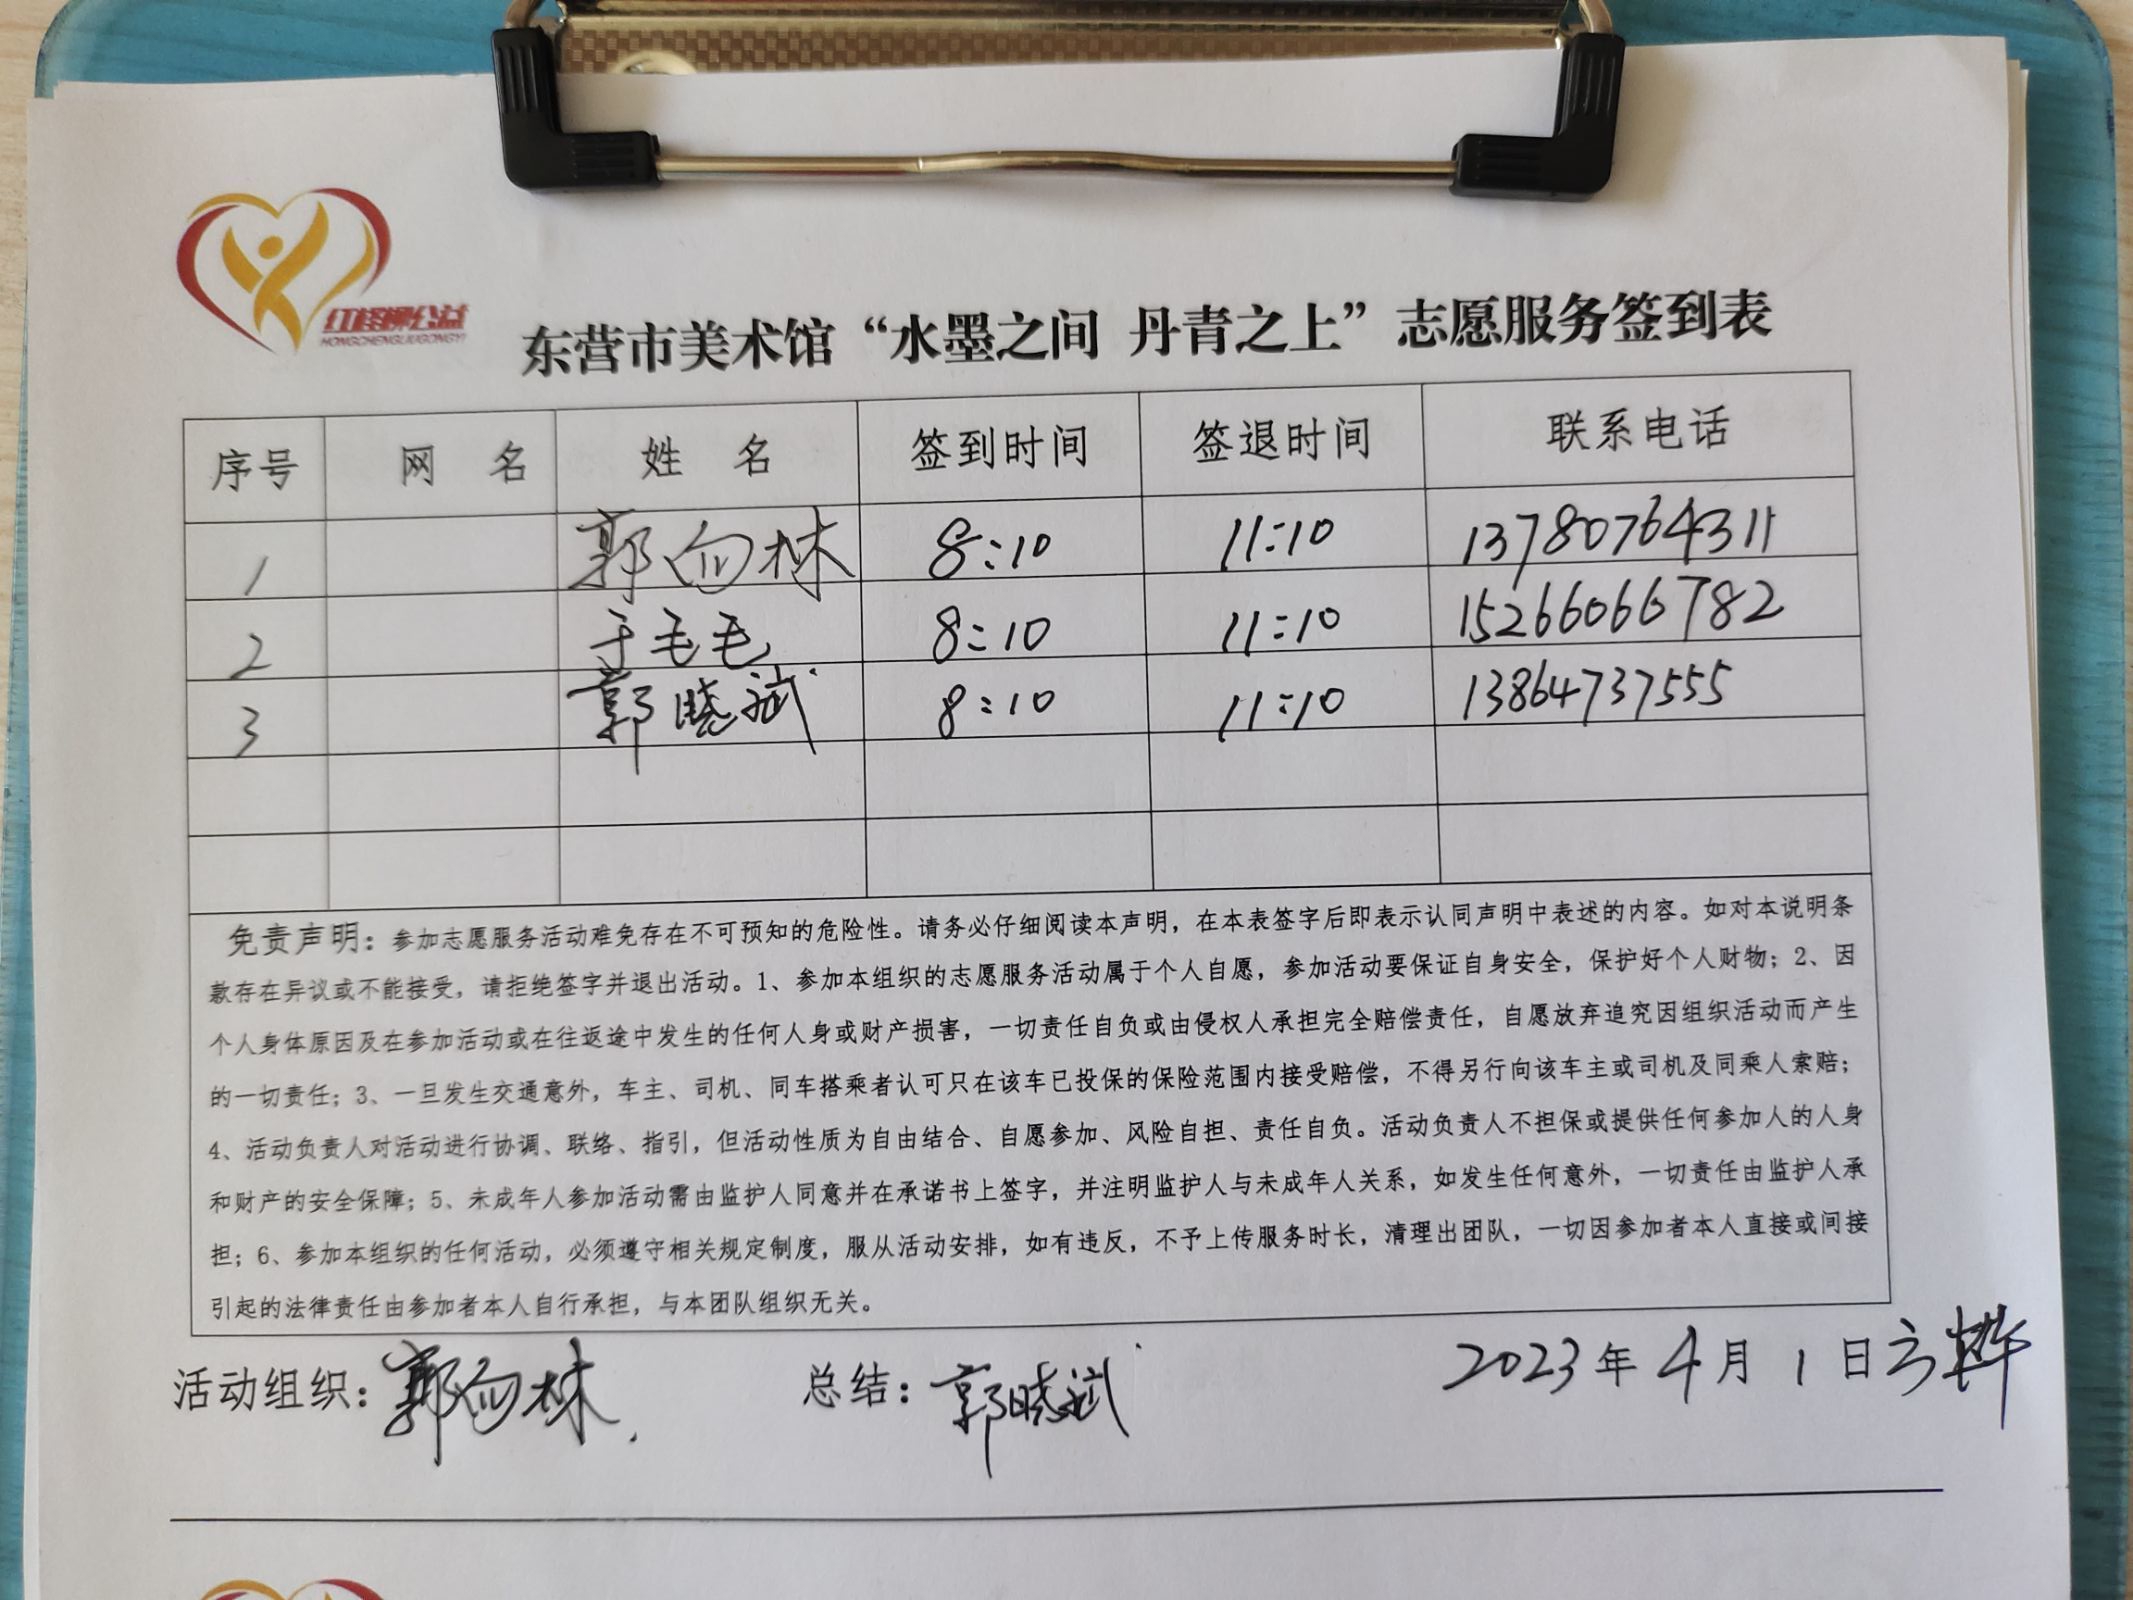 红柽柳公益
HONGCHENGLIUGONGYI
东营市美术馆“水墨之间 丹青之上”志愿服务签到表
序号 网 名 姓 名 签到时间 签退时间 联系电话
1 郭向林 8:10 11:10 13780764311
2 于毛毛 8:10 11:10 15266066782
3 郭晓斌 8:10 11:10 13864737555
免责声明：参加志愿服务活动难免存在不可预知的危险性。请务必仔细阅读本声明，在本表签字后即表示认同声明中表述的内容。如对本说明条
款存在异议或不能接受，请拒绝签字并退出活动。1、参加本组织的志愿服务活动属于个人自愿，参加活动要保证自身安全，保护好个人财物；2、因
个人身体原因及在参加活动或在往返途中发生的任何人身或财产损害，一切责任自负或由侵权人承担完全赔偿责任，自愿放弃追究因组织活动而产生
的一切责任；3、一旦发生交通意外，车主、司机、同车搭乘者认可只在该车已投保的保险范围内接受赔偿，不得另行向该车主或司机及同乘人索赔；
4、活动负责人对活动进行协调、联络、指引，但活动性质为自由结合、自愿参加、风险自担、责任自负。活动负责人不担保或提供任何参加人的人身
和财产的安全保障；5、未成年人参加活动需由监护人同意并在承诺书上签字，并注明监护人与未成年人关系，如发生任何意外，一切责任由监护人承
担；6、参加本组织的任何活动，必须遵守相关规定制度，服从活动安排，如有违反，不予上传服务时长，清理出团队，一切因参加者本人直接或间接
引起的法律责任由参加者本人自行承担，与本团队组织无关。
活动组织：郭向林 总结：郭晓斌 2023年4月1日